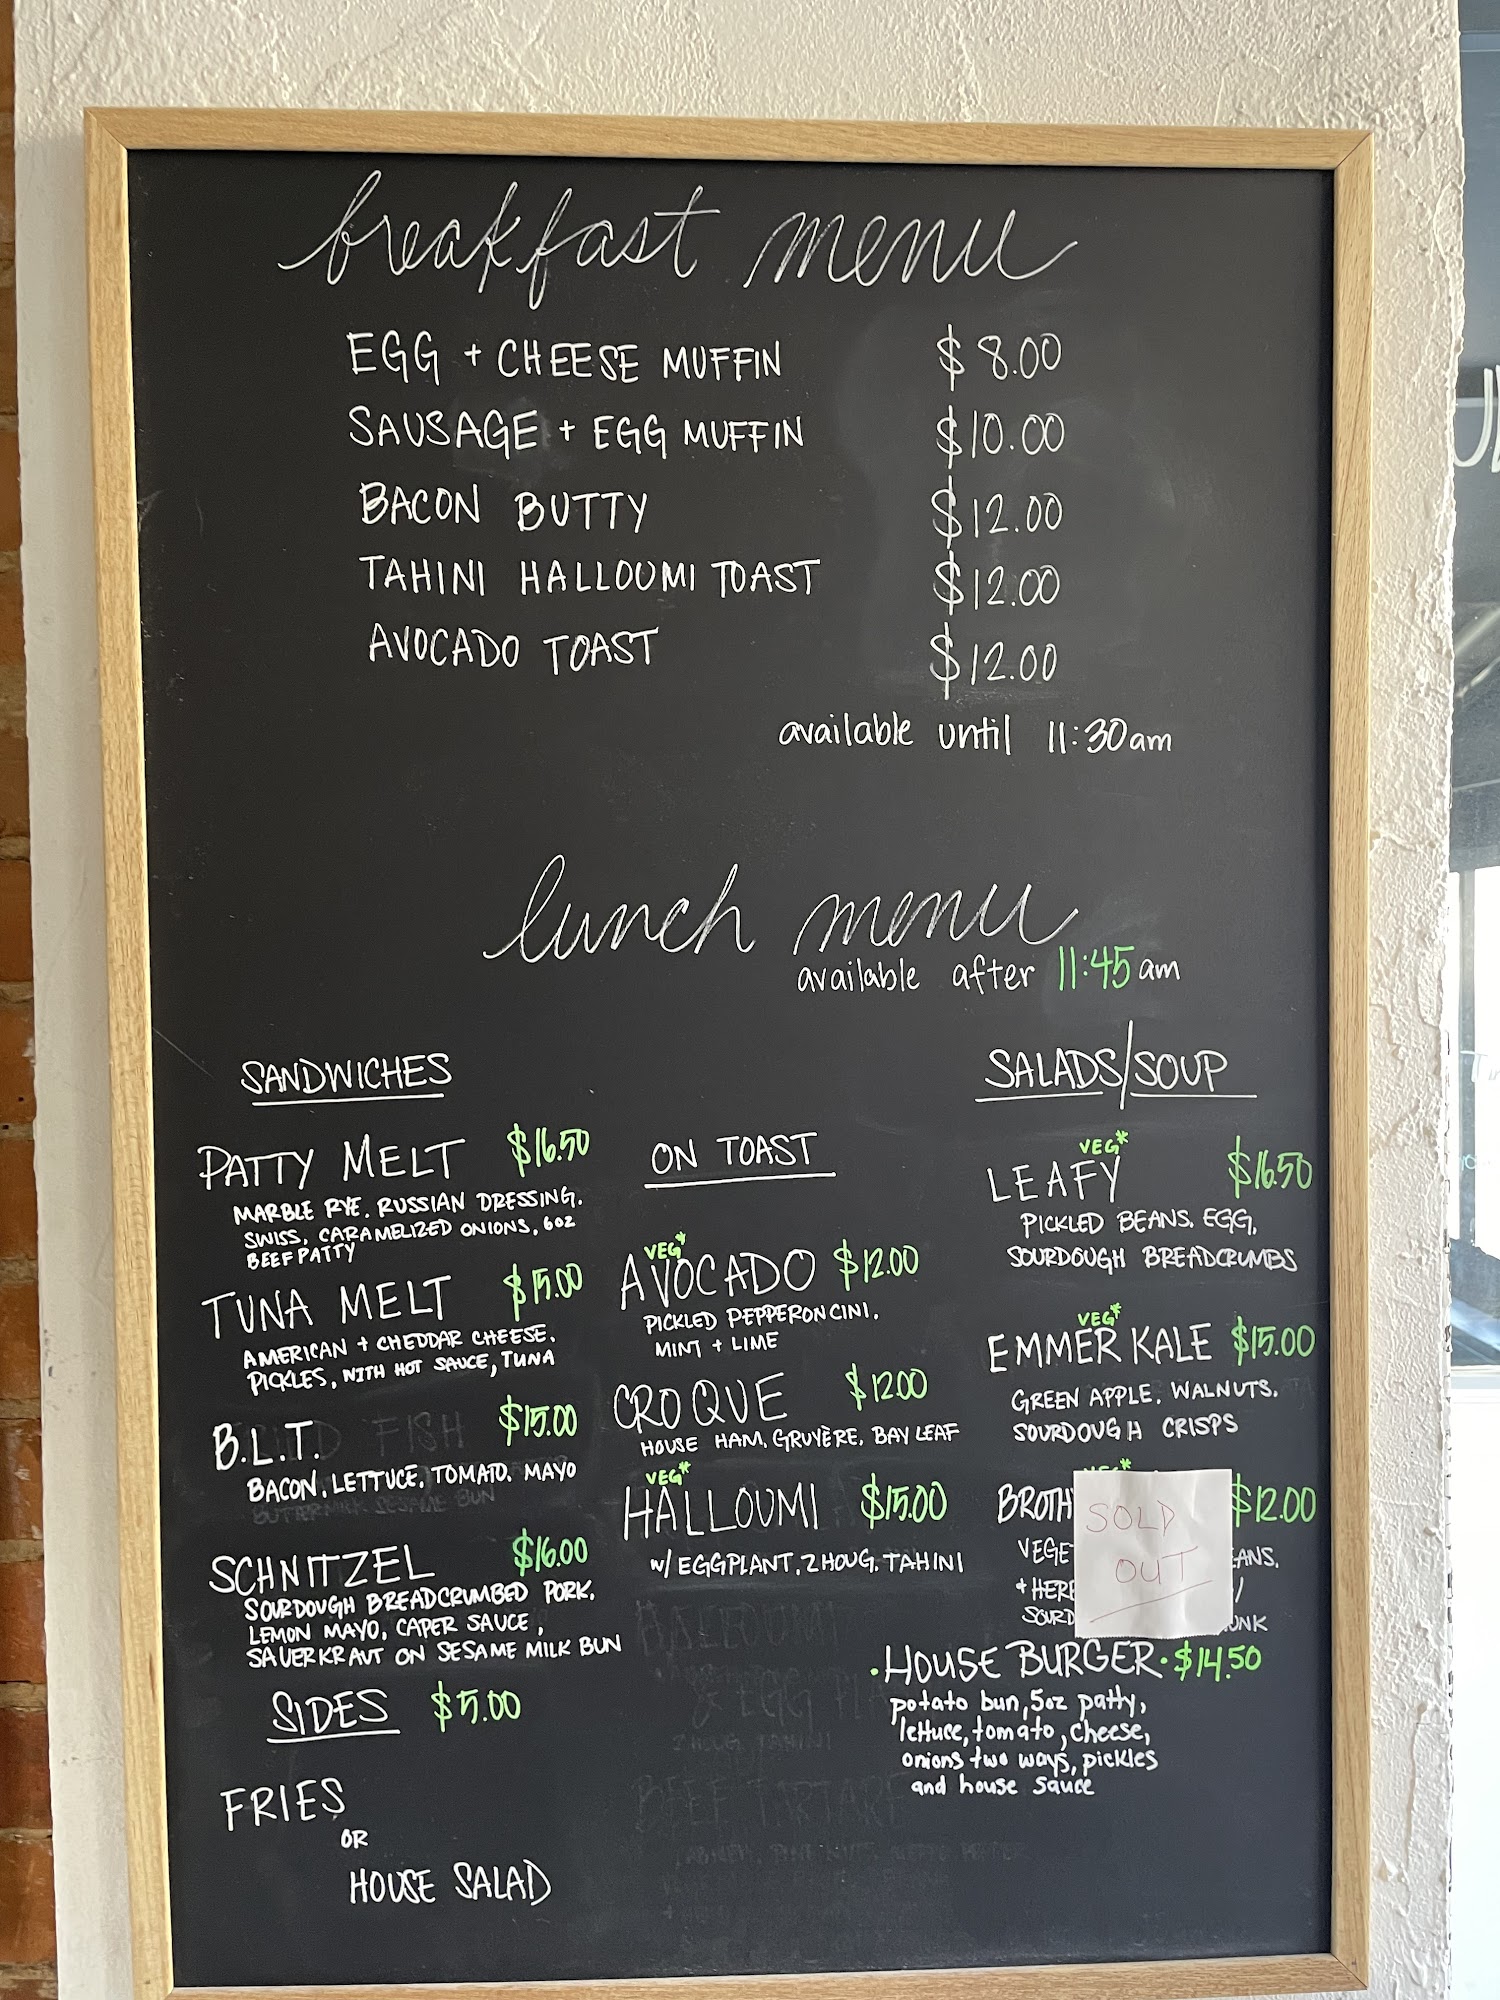 breakfast menu
EGG + CHEESE MUFFIN $8.00
SAUSAGE + EGG MUFFIN $10.00
BACON BUTTY $12.00
TAHINI HALLOUMI TOAST $12.00
AVOCADO TOAST $12.00
available until 11:30am
lunch menu
available after 11:45am
SANDWICHES
PATTY MELT $16.50
MARBLE RYE, RUSSIAN DRESSING,
SWISS, CARAMELIZED ONIONS, 6OZ
BEEF PATTY
TUNA MELT $15.00
AMERICAN + CHEDDAR CHEESE,
PICKLES, WITH HOT SAUCE, TUNA
B.L.T. $15.00
BACON, LETTUCE, TOMATO, MAYO
SCHNITZEL $16.00
SOURDOUGH BREADCRUMBED PORK,
LEMON MAYO, CAPER SAUCE,
SAUERKRAUT ON SESAME MILK BUN
SIDES $5.00
FRIES
OR
HOUSE SALAD
ON TOAST
VEG*
AVOCADO $12.00
PICKLED PEPPERONCINI,
MINT + LIME
CROQUE $12.00
HOUSE HAM, GRUYÈRE, BAY LEAF
VEG*
HALLOUMI $15.00
W/ EGGPLANT, ZHOUG, TAHINI
SALADS/SOUP
VEG*
LEAFY $16.50
PICKLED BEANS, EGG,
SOURDOUGH BREADCRUMBS
VEG*
EMMER KALE $15.00
GREEN APPLE, WALNUTS,
SOURDOUGH CRISPS
BROTH $12.00
SOLD
OUT
·HOUSE BURGER· $14.50
potato bun, 5oz patty,
lettuce, tomato, cheese,
onions two ways, pickles
and house sauce